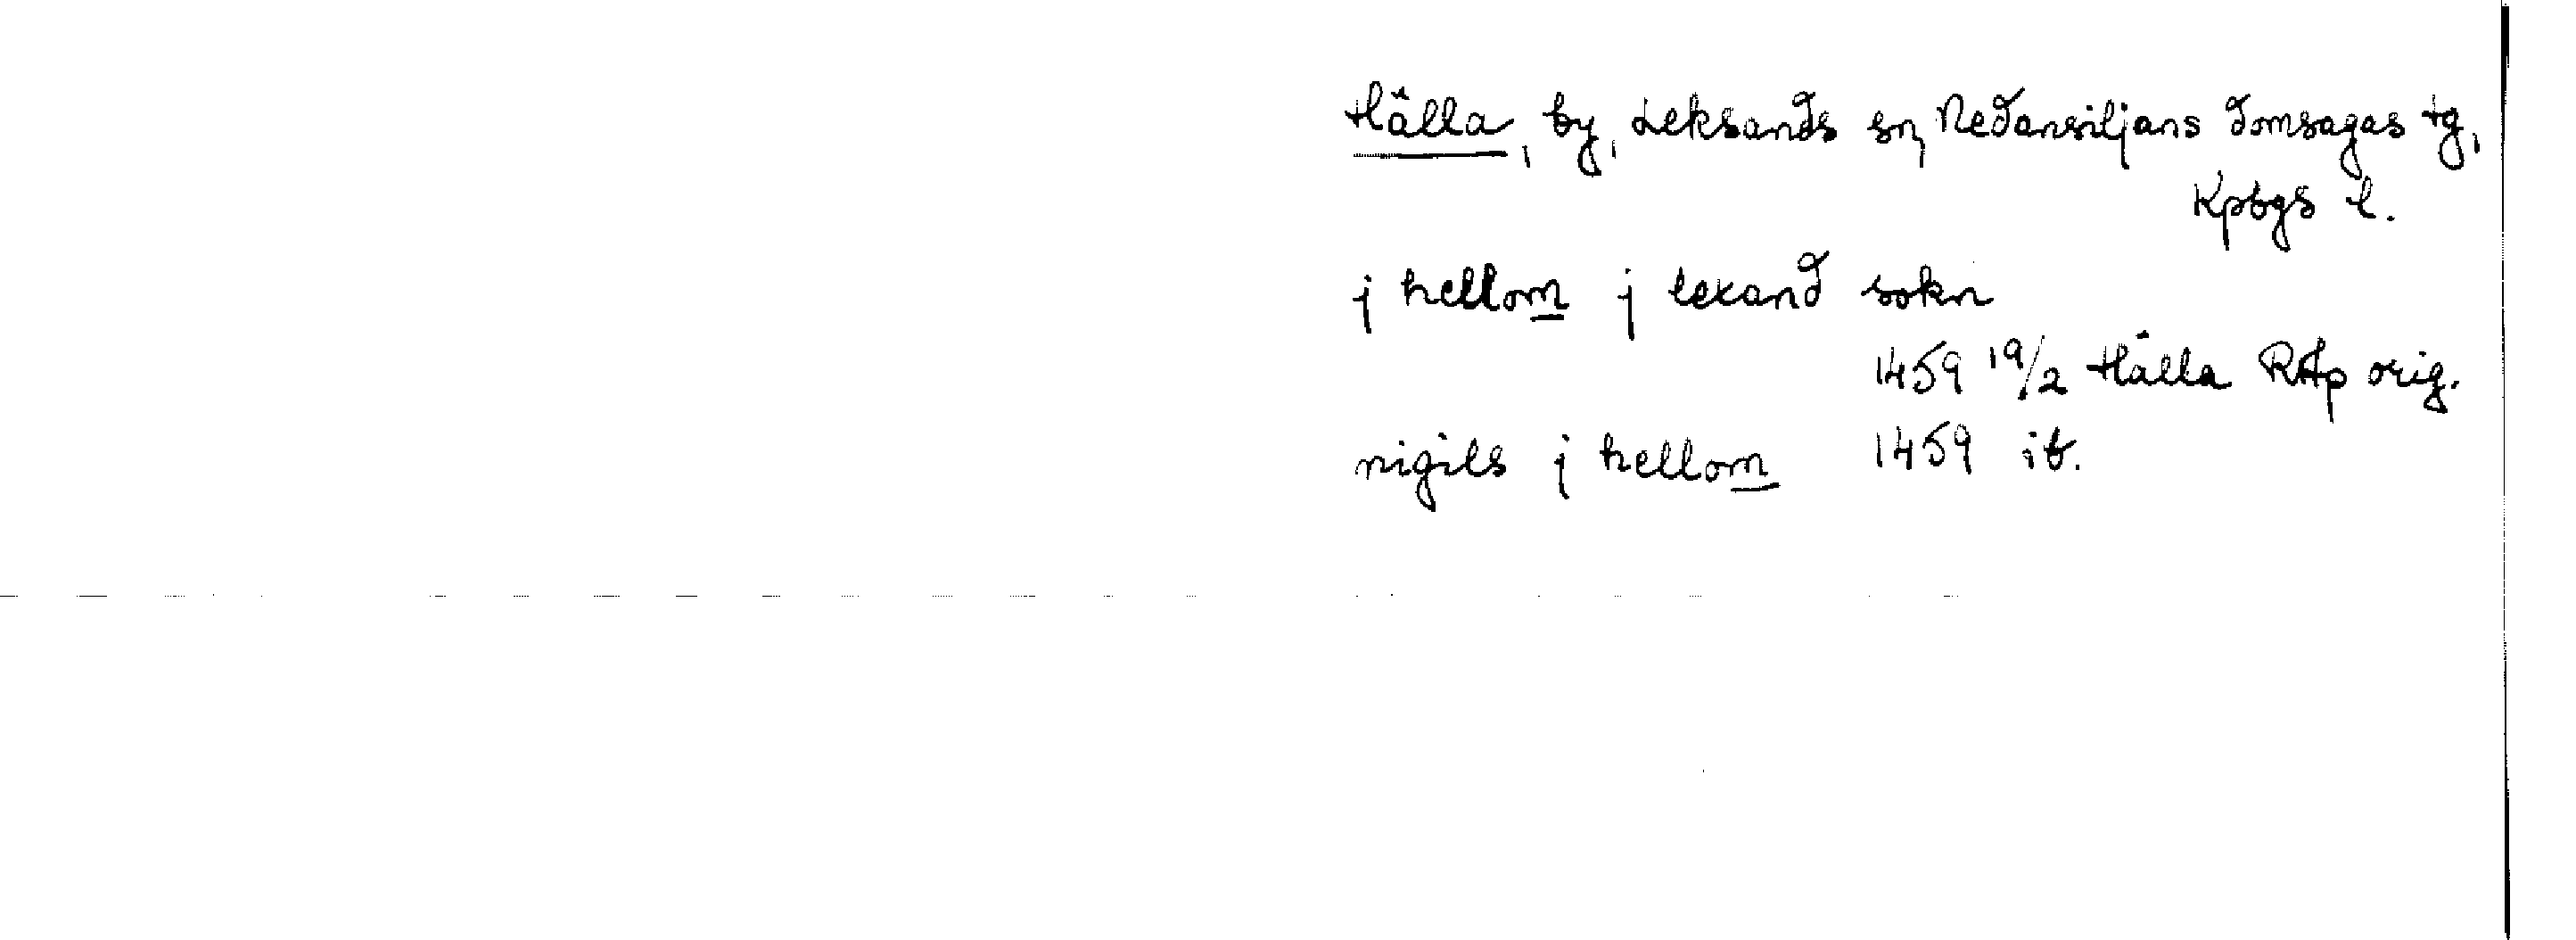 Hälla, by, Leksands sn, Nedansiljans domsagas tg,
Kpbgs l.
j hellom j lexand sokn
1459 19/2 Hälla RAp orig.
nigils j hellom 1459 ib.